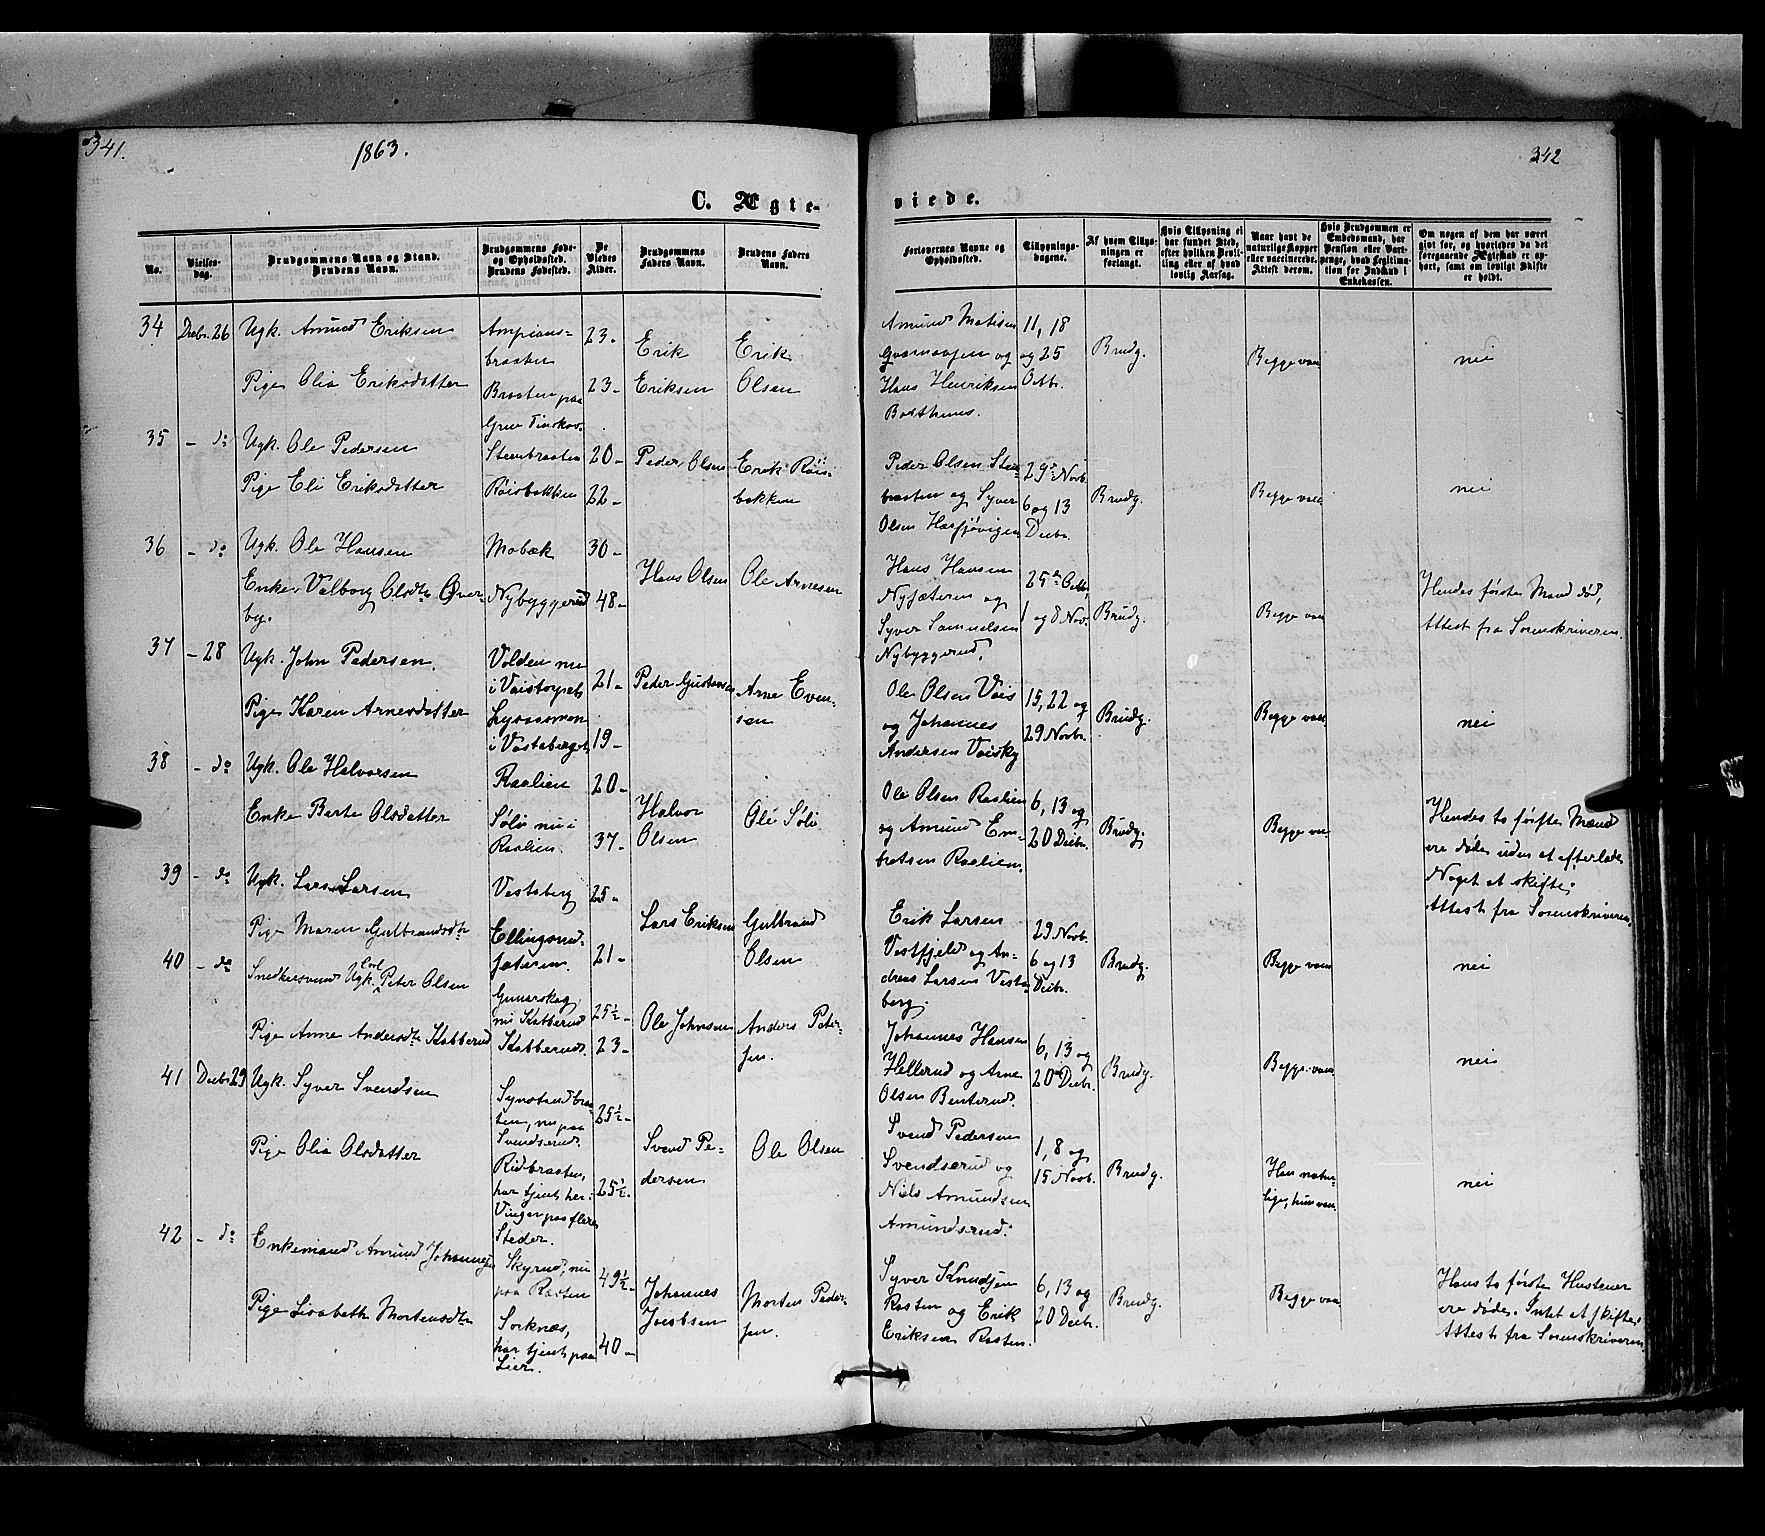 341.
1863.
342
C. Ægte-
viede.
No.
Vielses-
dag.
Brudgommens Navn og Stand.
Brudens Navn.
Brudgommens Føde-
og Opholdssted.
Brudens Fødested.
De
Viedes
Alder.
Brudgommens
Faders Navn.
Brudens Faders
Navn.
Forlovernes Navne og
Opholdssted.
Tillysnings-
dagene.
Af hvem Tillys-
ningen er
forlangt.
Hvis Tillysning ei
har fundet Sted,
efter hvilken Bevil-
ling eller af hvad
lovlig Aarsag.
Naar havt de
naturlige Kopper
eller vaccinerede.
Attest derom.
Hvis Brudgommen er
Embedsmand, har
Pension eller Vart-
penge, hvad Legitima-
tion for Indskud i
Enkekassen.
Om nogen af dem har været
gift før, og hvorledes da det
foregaaende Ægteskab er op-
hørt, samt om lovligt Skifte
er holdt.
34 Decbr. 26 Ugk. Amund Eriksen
Pige Olia Eriksdatter
Ampians-
braaten
Braaten paa
Grue Finskov.
23-
23-
Erik
Eriksen
Erik
Olsen
Amund Matisen
og
Hans Henriksen
11, 18
og 25
Octbr.
Brudg.
Begge vacc
nei
35 - do Ugk. Ole Pedersen
Pige Eli Eriksdatter
Steenbraaten
Röisbakken
20-
22-
Peder Olsen
Erik Röis-
bakken
Peder Olsen Sten-
braaten og Syver
Olsen
29de Novb.
6 og 13
Decbr.
Brudg.
Begge vacc
nei
36 - do Ugk. Ole Hansen
Enke Valborg Olsdtr Över-
by.
Mobæk
Nybyggerud
30-
48-
Hans Olsen
Ole Arnesen
Hans Hansen
Nysæteren og
Syver Samuelsen
Nybyggerud.
25de Octbr.
1 og 8 Nov.
Brudg.
Begge vacc
Hendes første Mand død,
Attest fra Sorenskriveren.
37 - 28 Ugk. John Pedersen.
Pige Karen Arnesdatter
Volden nu
i Vaistorpet
Lyraasmoen
i Vestaberget
21-
19-
Peder Gustavsen
Arne Even-
sen
Ole Olsen Vais
og Johannes
Andersen
15, 22 og
29 Novbr.
Brudg.
Begge vacc
nei
38 - do Ugk. Ole Halvorsen
Enke Berte Olsdatter
Raalien
Sölö nu i
Raalien
20-
37-
Halvor
Olsen
Ole Sölö
Ole Olsen Raalien
og Amund Em-
bretsen Raalien.
6, 13 og
20 Decbr.
Brudg.
Begge vacc
Hendes to første Mænd
ere døde uden at efterlade
Noget at skifte.
Attest fra Sorenskriveren.
39 - do Ugk. Lars Larsen
Pige Maren Gulbrandsdtr
Vestaberg
Ellingsrud-
sæteren.
25-
21-
Lars Eriksen
Gulbrand
Olsen
Erik Larsen
Vestfjeld og An-
dreas Larsen Vesta-
berg.
29 Novb.
6 og 13
Decbr.
Brudg.
Begge vacc
nei
40 - do Snedkersvend Ugk. Carl Peter Olsen
Pige Anne Andersdtr Skabberud
Gunarskog,
nu Skabberud
Skabberud.
25½-
23-
Ole Johnsen
Anders Peter-
sen.
Johannes Hansen
Hellerud og Arne
Olsen Benterud.
6, 13 og
20de Decbr.
Brudg.
Begge vacc
nei
41 Decbr 29 Ugk. Syver Svendsen
Pige Olia Olsdatter
ten, nu paa
Svendserud.
Ridbraaten,
har tjent her i
Vinger paa flere
Steder.
25½-
25½-
Svend Pe-
dersen
Ole Olsen
Svend Pedersen
Svendserud og
Niels Amundsen
Amundsrud.
1, 8 og
15 Novb.
Brudg.
Han natur-
lige, hun vacc.
nei
42 - do Enkemand Amund Johannesen
Pige Lisabeth Mortensdtr
Skyrud, nu
paa Rasten
Sorknæs,
har tjent paa
Lier.
49½-
40-
Johannes
Jacobsen
Morten Peder-
sen.
Syver Knudsen
Rasten og Erik
Eriksen Rasten.
6, 13 og
20 Decbr.
Brudg.
Begge vacc
Hans to første Hustruer
ere døde. Intet at skifte.
Attest fra Sorenskriveren